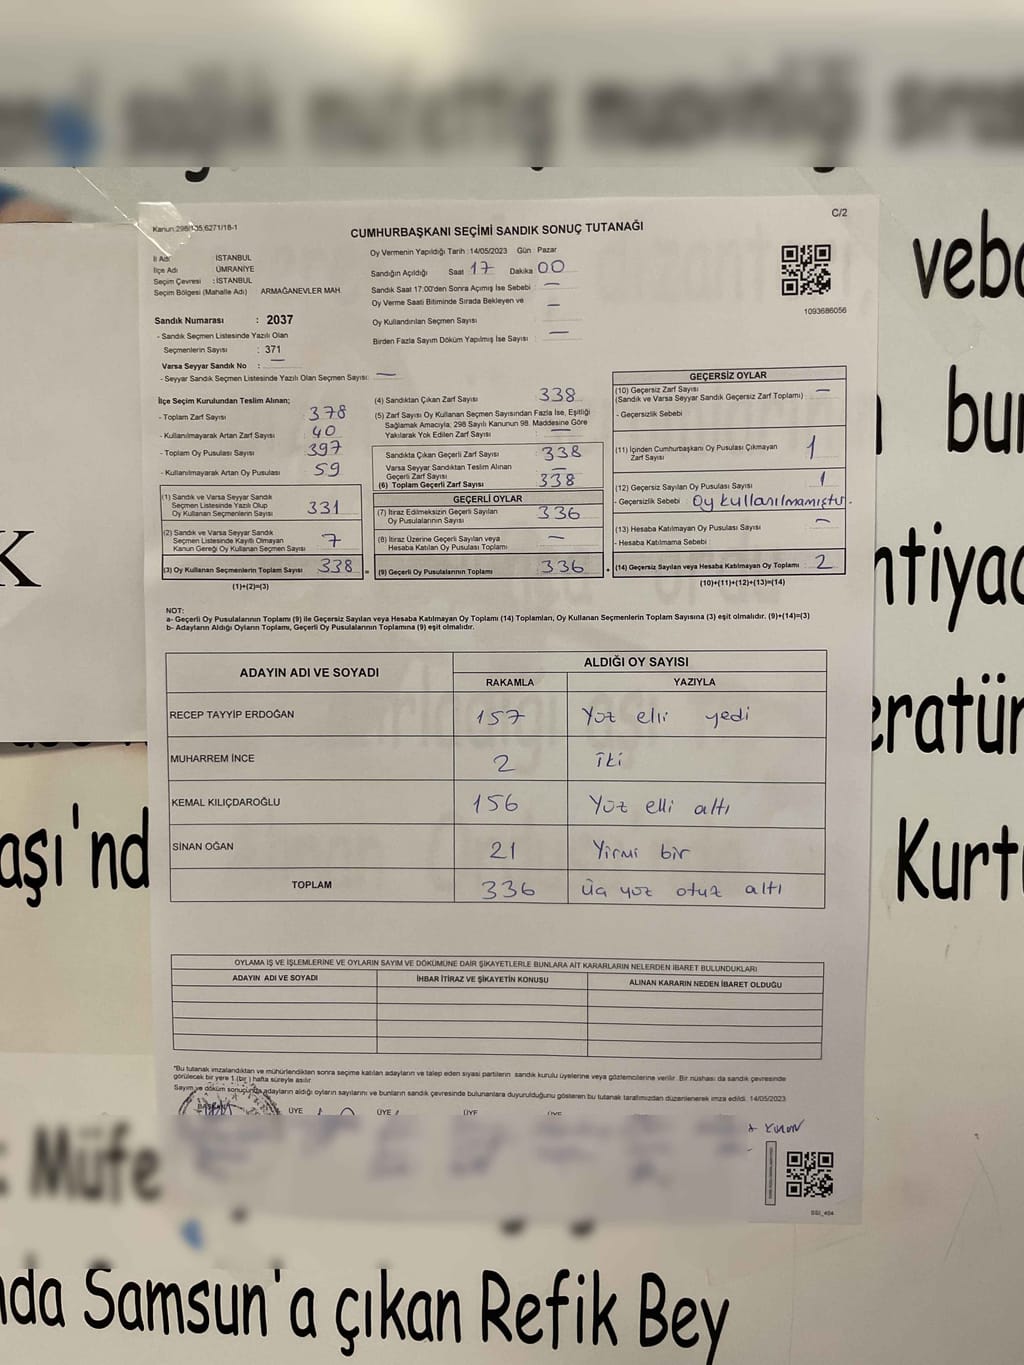 C/2
Kanun:298/105,6271/18-1
CUMHURBAŞKANI SEÇİMİ SANDIK SONUÇ TUTANAĞI
İl Adı : İSTANBUL
İlçe Adı ÜMRANİYE
Seçim Çevresi : İSTANBUL
Seçim Bölgesi (Mahalle Adı) ARMAĞANEVLER MAH.
Sandık Numarası : 2037
- Sandık Seçmen Listesinde Yazılı Olan
Seçmenlerin Sayısı : 371
Varsa Seyyar Sandık No : —
- Seyyar Sandık Seçmen Listesinde Yazılı Olan Seçmen Sayısı: —
Oy Vermenin Yapıldığı Tarih :14/05/2023 Gün : Pazar
Sandığın Açıldığı Saat 17 Dakika 00
Sandık Saat 17:00'den Sonra Açımış İse Sebebi : —
Oy Verme Saati Bitiminde Sırada Bekleyen ve —
Oy Kullandırılan Seçmen Sayısı
Birden Fazla Sayım Döküm Yapılmış İse Sayısı : —
1093686056
İlçe Seçim Kurulundan Teslim Alınan;
- Toplam Zarf Sayısı 378
- Kullanılmayarak Artan Zarf Sayısı 40
- Toplam Oy Pusulası Sayısı 397
- Kullanılmayarak Artan Oy Pusulası 59
(1) Sandık ve Varsa Seyyar Sandık
Seçmen Listesinde Yazılı Olup
Oy Kullanan Seçmenlerin Sayısı 331
(2) Sandık ve Varsa Seyyar Sandık
Seçmen Listesinde Kayıtlı Olmayan
Kanun Gereği Oy Kullanan Seçmen Sayısı 7
(3) Oy Kullanan Seçmenlerin Toplam Sayısı 338 =
(1)+(2)=(3)
(4) Sandıktan Çıkan Zarf Sayısı 338
(5) Zarf Sayısı Oy Kullanan Seçmen Sayısından Fazla İse, Eşitliği
Sağlamak Amacıyla; 298 Sayılı Kanunun 98. Maddesine Göre
Yakılarak Yok Edilen Zarf Sayısı —
Sandıkta Çıkan Geçerli Zarf Sayısı 338
Varsa Seyyar Sandıktan Teslim Alınan
Geçerli Zarf Sayısı —
(6) Toplam Geçerli Zarf Sayısı 338
GEÇERLİ OYLAR
(7) İtiraz Edilmeksizin Geçerli Sayılan
Oy Pusulalarının Sayısı 336
(8) İtiraz Üzerine Geçerli Sayılan veya
Hesaba Katılan Oy Pusulası Toplamı —
(9) Geçerli Oy Pusulalarının Toplamı 336 +
GEÇERSİZ OYLAR
(10) Geçersiz Zarf Sayısı —
(Sandık ve Varsa Seyyar Sandık Geçersiz Zarf Toplamı)
- Geçersizlik Sebebi
(11) İçinden Cumhurbaşkanı Oy Pusulası Çıkmayan
Zarf Sayısı 1
(12) Geçersiz Sayılan Oy Pusulası Sayısı 1
- Geçersizlik Sebebi Oy kullanılmamıştır.
(13) Hesaba Katılmayan Oy Pusulası Sayısı —
- Hesaba Katılmama Sebebi :
(14) Geçersiz Sayılan veya Hesaba Katılmayan Oy Toplamı 2
(10)+(11)+(12)+(13)=(14)
NOT:
a- Geçerli Oy Pusulalarının Toplamı (9) ile Geçersiz Sayılan veya Hesaba Katılmayan Oy Toplamı (14) Toplamları, Oy Kullanan Seçmenlerin Toplam Sayısına (3) eşit olmalıdır. (9)+(14)=(3)
b- Adayların Aldığı Oyların Toplamı, Geçerli Oy Pusulalarının Toplamına (9) eşit olmalıdır.
ADAYIN ADI VE SOYADI ALDIĞI OY SAYISI
RAKAMLA YAZIYLA
RECEP TAYYİP ERDOĞAN 157 Yüz elli yedi
MUHARREM İNCE 2 İki
KEMAL KILIÇDAROĞLU 156 Yüz elli altı
SİNAN OĞAN 21 Yirmi bir
TOPLAM 336 Üç yüz otuz altı
OYLAMA İŞ VE İŞLEMLERİNE VE OYLARIN SAYIM VE DÖKÜMÜNE DAİR ŞİKAYETLERLE BUNLARA AİT KARARLARIN NELERDEN İBARET BULUNDUKLARI
ADAYIN ADI VE SOYADI İHBAR İTİRAZ VE ŞİKAYETİN KONUSU ALINAN KARARIN NEDEN İBARET OLDUĞU
*Bu tutanak imzalandıktan ve mühürlendikten sonra seçime katılan adayların ve talep eden siyasi partilerin sandık kurulu üyelerine veya gözlemcilerine verilir. Bir nüshası da sandık çevresinde
görülecek bir yere 1 (bir) hafta süreyle asılır
Sayım ve döküm sonuçunda adayların aldığı oyların sayılarını ve bunların sandık çevresinde bulunanlara duyurulduğunu gösteren bu tutanak tarafımızdan düzenlenerek imza edildi. 14/05/2023
BAŞKAN ÜYE ÜYE ÜYE ÜYE
SSI_404
K
vebo
bur
ntiyac
eratür
aşı'nd
Kurtu
: Müfe
nda Samsun'a çıkan Refik Bey